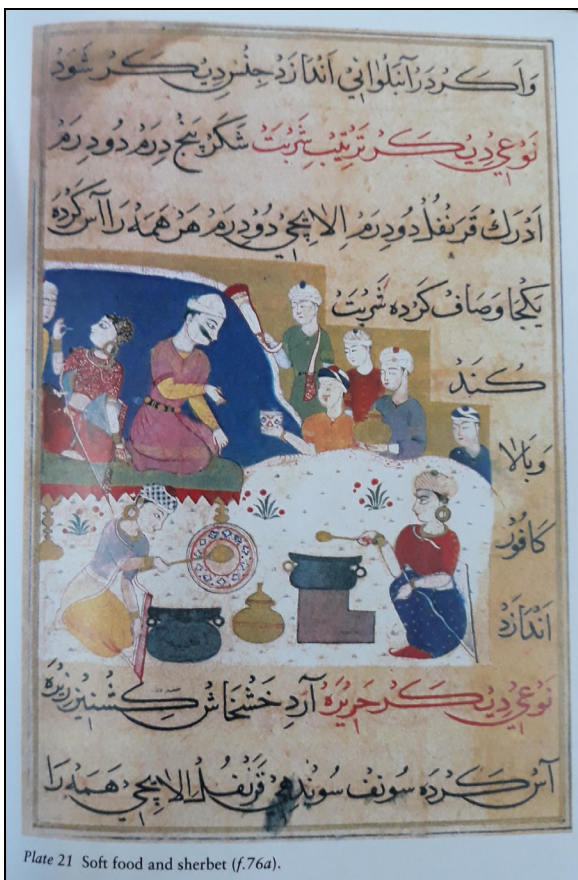 وَاَکَر دَر آنبلوانی اَندازَد جِنسِ دِیکَر شَوَد
نَوعِی دِیکَر تَرتیبِ شَربَت شَکَر پَنج دِرَم دُو دِرَم
اَدرَك قَرَنفُل دُو دِرَم اِلایچی دُو دِرَم هَر هَمَه رَا آس کَرده
یَکجا وَ صاف کَرده شَربَت
کُنَد
وَبالا
کافُور
اَندازَد
نَوعِی دِیکَر حَریرَه آردِ خَشخاش کِشنیز زیرَه
آس کَرده سونف سوندهی قَرَنفُل اِلایچی هَمَه رَا
Plate 21 Soft food and sherbet (f.76a).